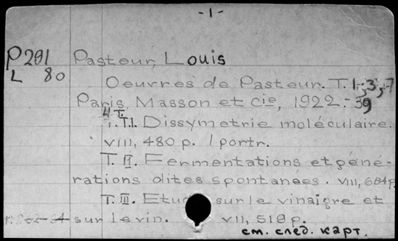 -1-
P291 Pasteur, Louis
L 80
Oeuvres de Pasteur. T. 1-3,-7
Paris, Masson et Cie, 1922-39
T. I. Dissymetrie moléculaire.
VIII, 480 p. 1 portr.
T. II. Fermentations et géné-
rations dites spontanées. VIII, 664 p.
T. III. Etud sur le vinaigre et
sur le vin. VII, 519 p.
см. след. карт.